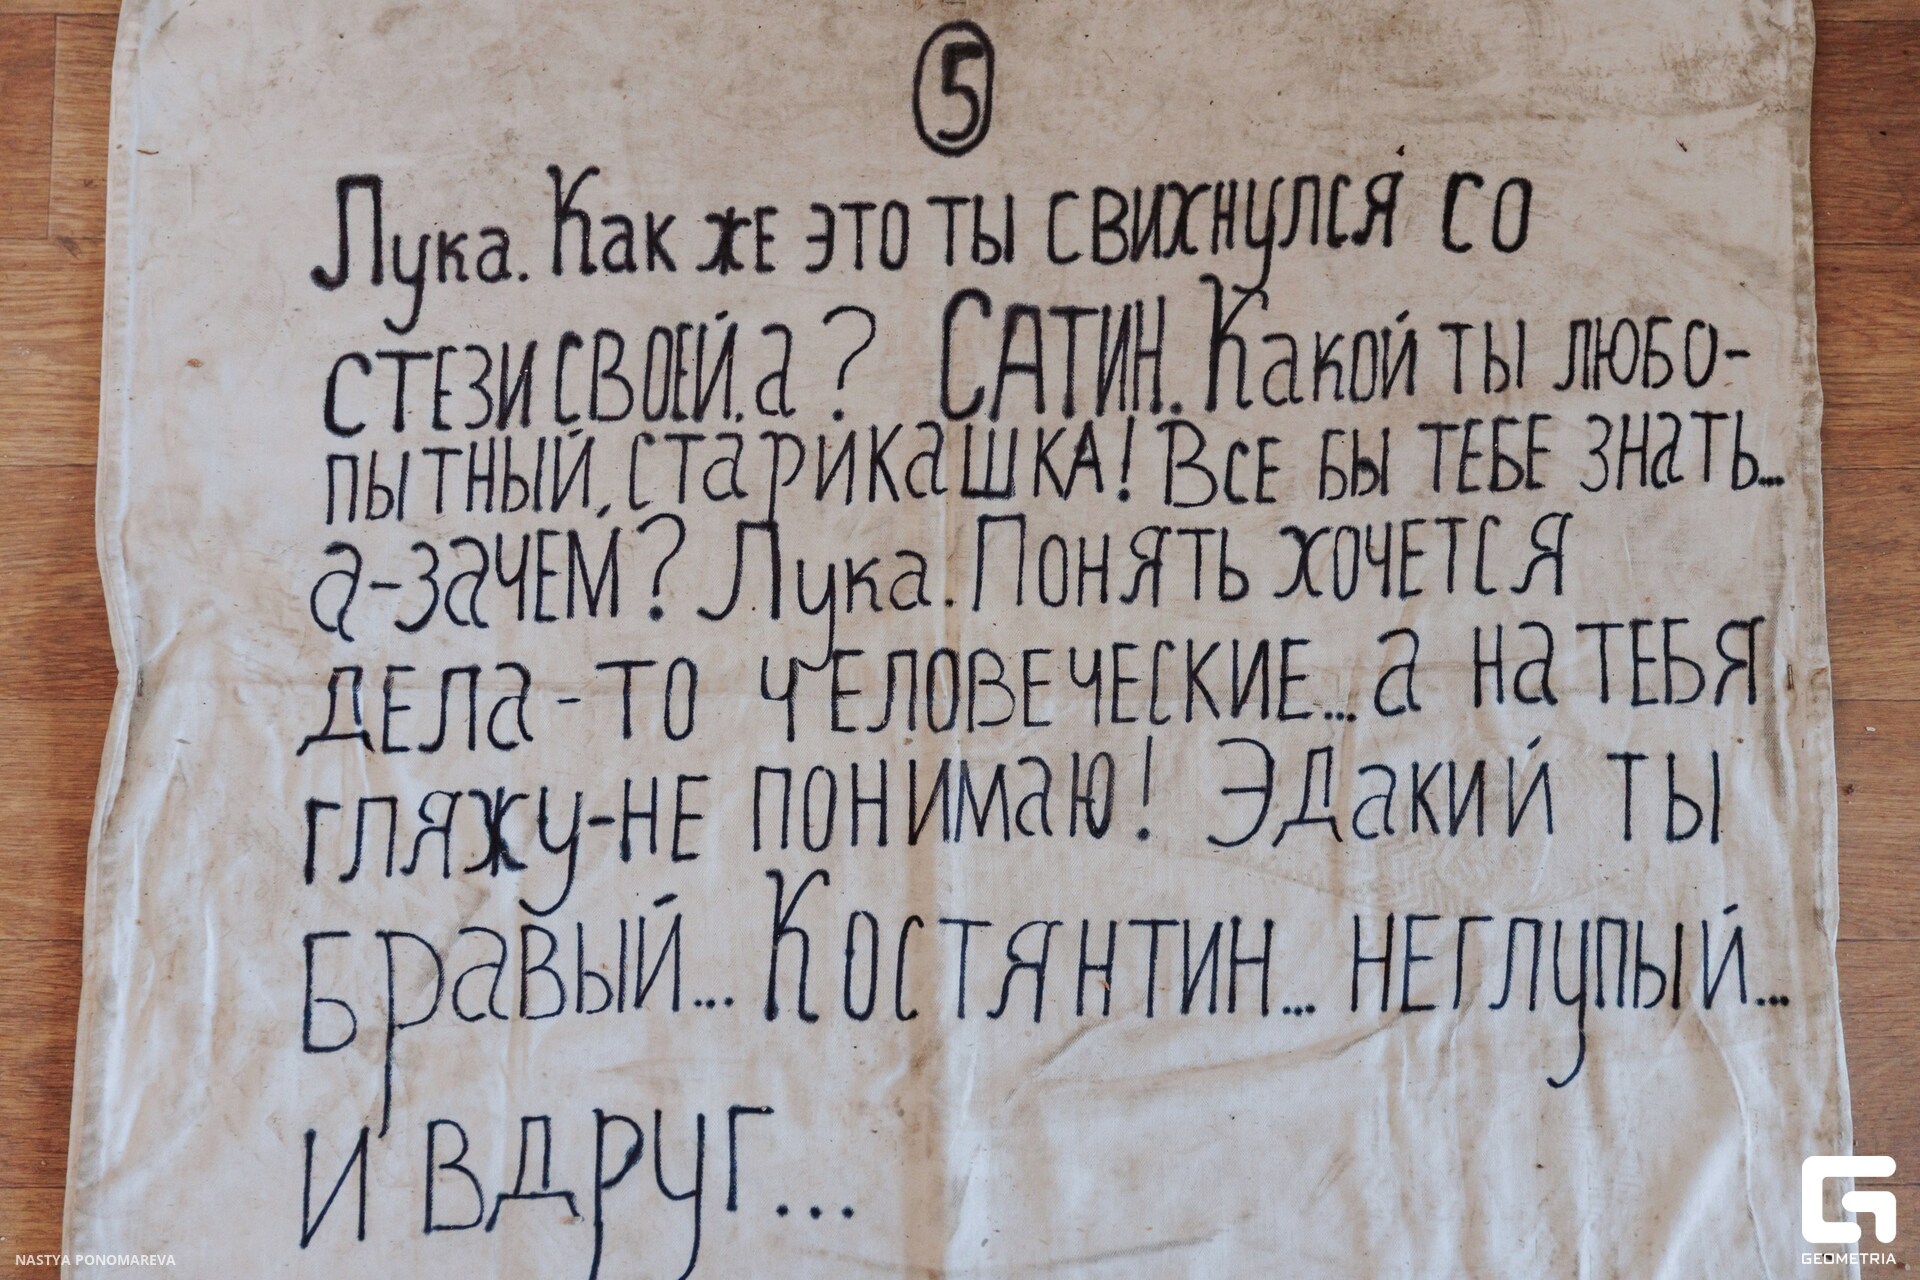 5
Лука. Как же это ты свихнулся со
стези своей, а? САТИН. Какой ты любо-
пытный, старикашка! Все бы тебе знать...
а-зачем? Лука. Понять хочется
дела-то человеческие... а на тебя
гляжу-не понимаю! Эдакий ты
бравый... Костянтин... неглупый...
и вдруг...
NASTYA PONOMAREVA
GEOMETRIA